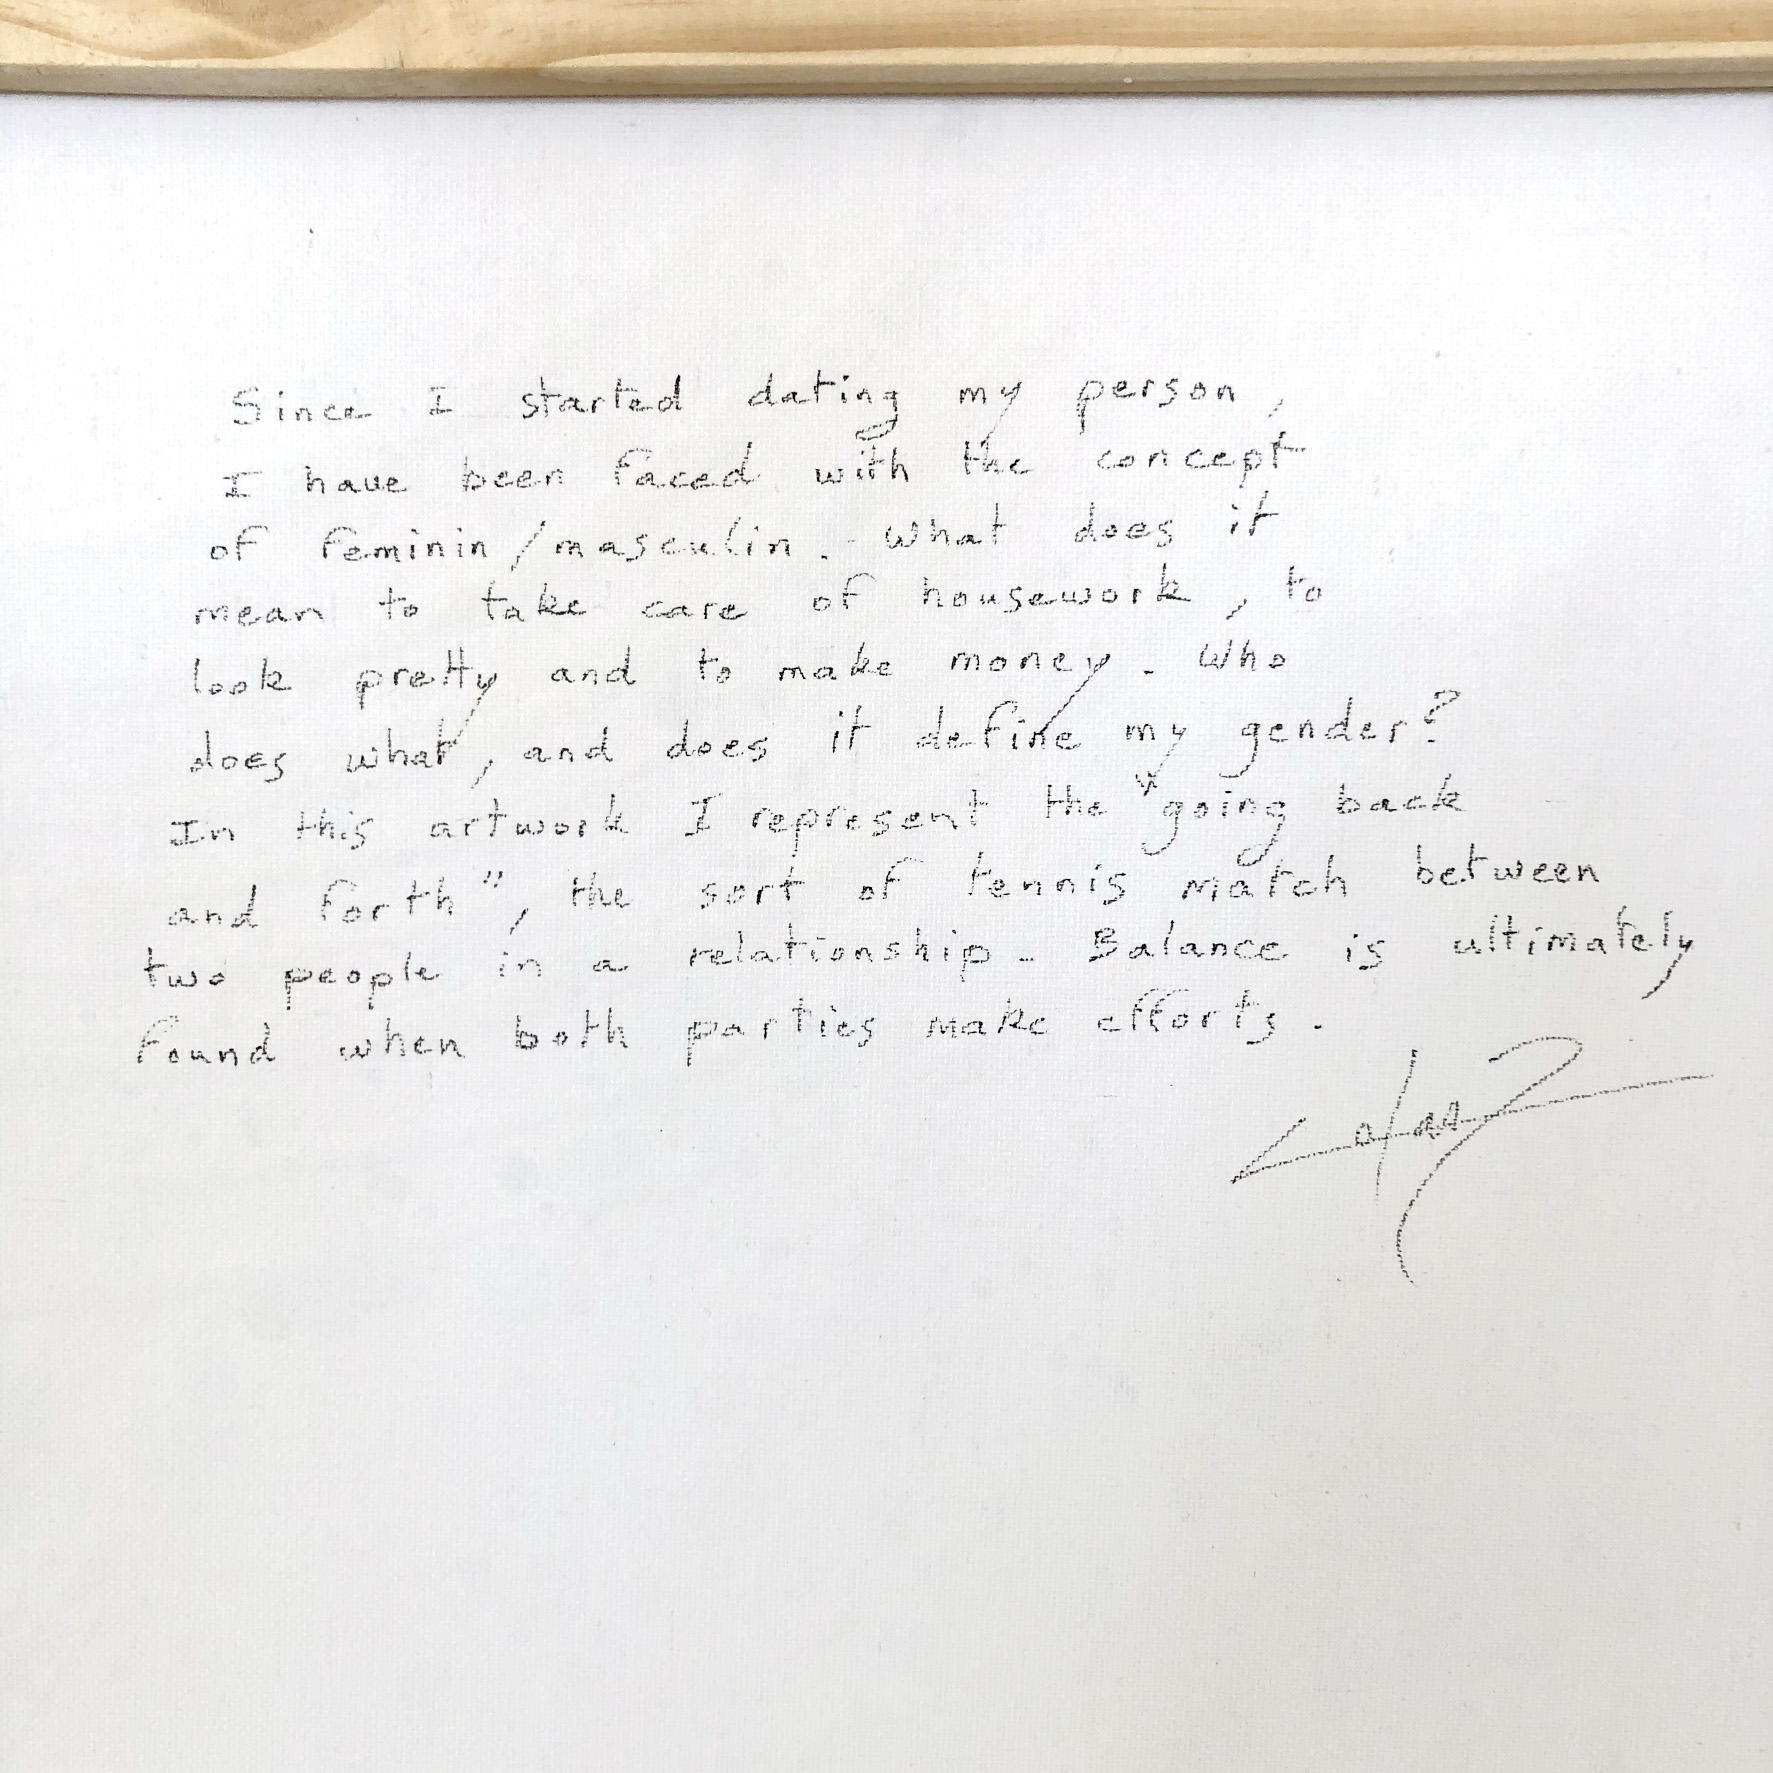 Since I started dating my person,
I have been faced with the concept
of feminin/masculin. What does it
mean to take care of housework, to
look pretty and to make money. Who
does what, and does it define my gender?
In this artwork I represent the "going back
and forth", the sort of tennis match between
two people in a relationship. Balance is ultimately
found when both parties make efforts.